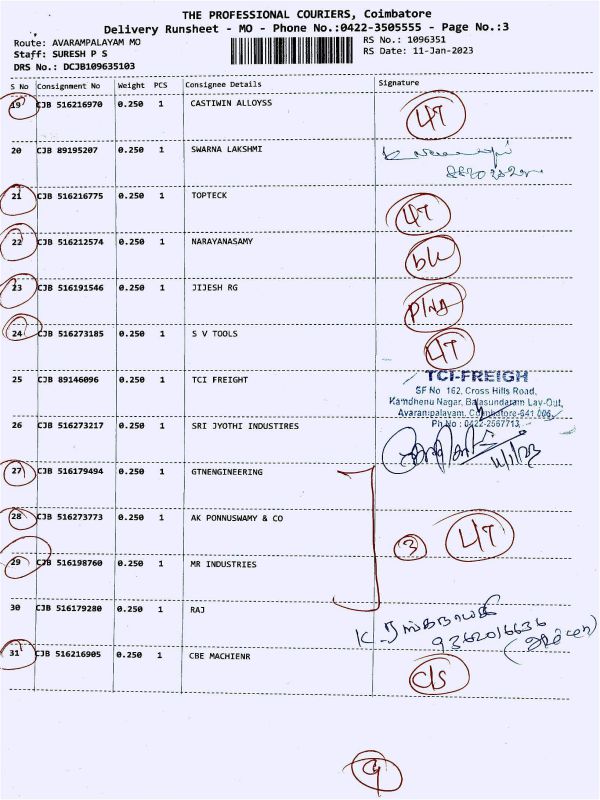 THE PROFESSIONAL COURIERS, Coimbatore
Delivery Runsheet - MO - Phone No.:0422-3505555 - Page No.:3
Route: AVARAMPALAYAM MO
RS No.: 1096351
Staff: SURESH P S
RS Date: 11-Jan-2023
DRS No.: DCJB109635103
S No Consignment No Weight PCS Consignee Details Signature
19 CJB 516216970 0.250 1 CASTIWIN ALLOYSS 4T
20 CJB 89195207 0.250 1 SWARNA LAKSHMI
21 CJB 516216775 0.250 1 TOPTECK 4T
22 CJB 516212574 0.250 1 NARAYANASAMY
23 CJB 516191546 0.250 1 JIJESH RG P/NA
24 CJB 516273185 0.250 1 S V TOOLS 4T
25 CJB 89146096 0.250 1 TCI FREIGHT
TCI-FREIGH
SF No 162, Cross Hills Road,
Kamdhenu Nagar, Balasundaram Lay-Out,
Avarampalayam, Coimbatore-641 006
Ph No : 0422-2567713
26 CJB 516273217 0.250 1 SRI JYOTHI INDUSTIRES
11/1/23
27 CJB 516179494 0.250 1 GTNENGINEERING
28 CJB 516273773 0.250 1 AK PONNUSWAMY & CO
3 4T
29 CJB 516198760 0.250 1 MR INDUSTRIES
30 CJB 516179280 0.250 1 RAJ
9362016636
31 CJB 516216905 0.250 1 CBE MACHIENR C/S